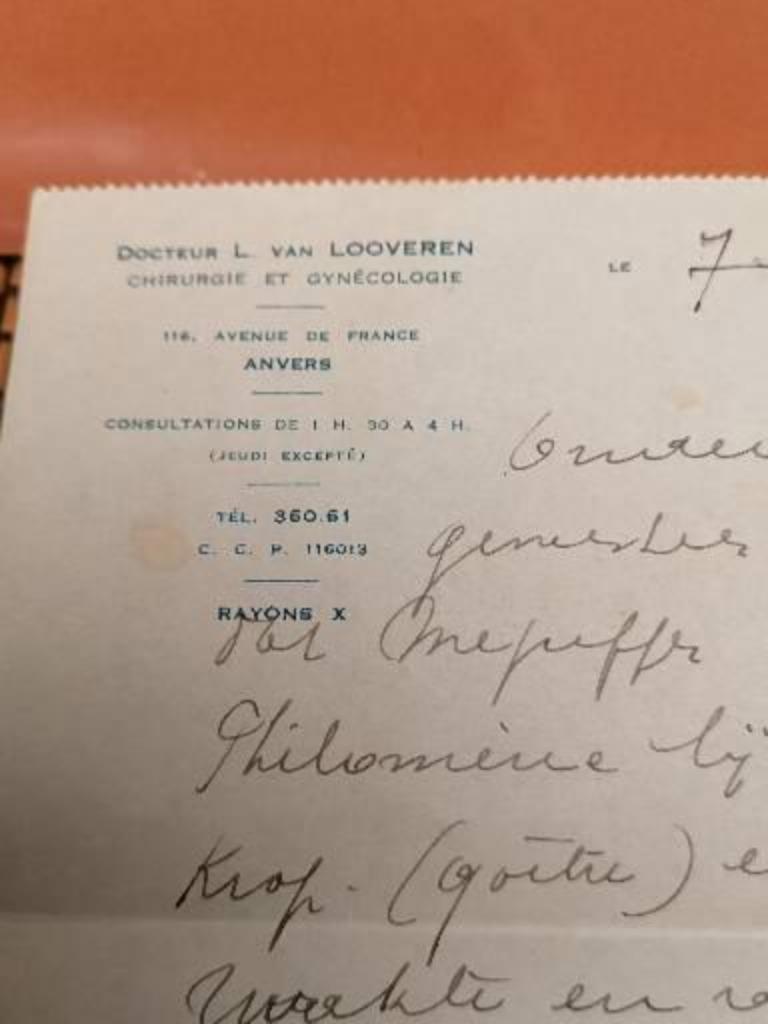 DOCTEUR L. VAN LOOVEREN
CHIRURGIE ET GYNÉCOLOGIE
LE 7-
116, AVENUE DE FRANCE
ANVERS
CONSULTATIONS DE 1 H. 30 A 4 H.
(JEUDI EXCEPTÉ)
TÉL. 360.61
C. C. P. 116013
RAYONS X
geneesheer
dat Mejuffr
Philomène lij
Krop. (goître) e
en